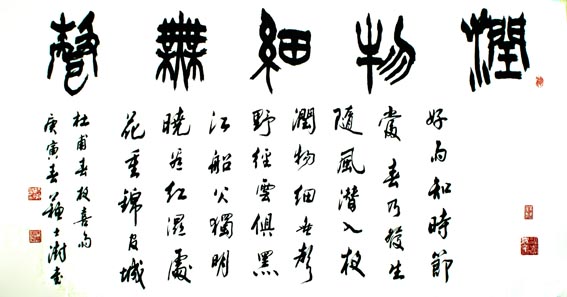 潤物細無聲
好雨知時節
當春乃發生
隨風潛入夜
潤物細無聲
野徑雲俱黑
江船火獨明
曉看紅濕處
花重錦官城
杜甫春夜喜雨
庚寅春蘇士澍書